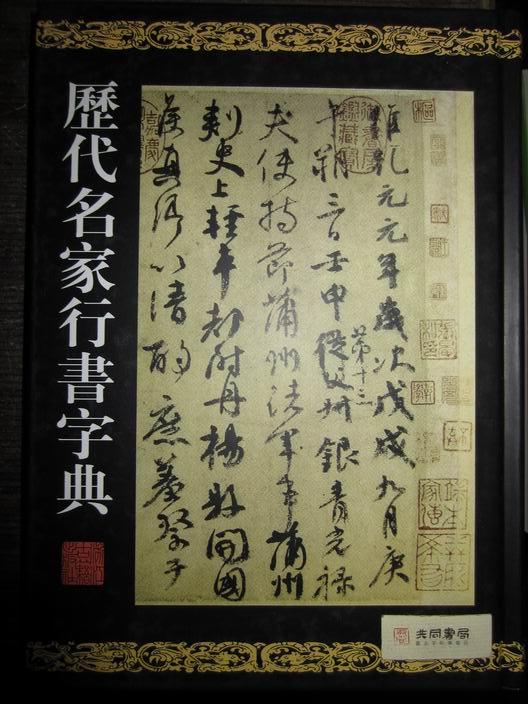 歷代名家行書字典
維乾元元年歲次戊戌九月庚
午朔三日壬申第十三從父叔銀青光祿
夫使持節蒲州諸軍事蒲州
刺史上輕車都尉丹楊縣開國
侯真卿以清酌庶羞祭于